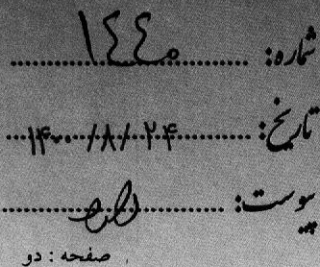 شماره: ١٤٤٠
تاریخ: ۱۴۰۰/۸/۲۴
پیوست: دارد
صفحه : دو